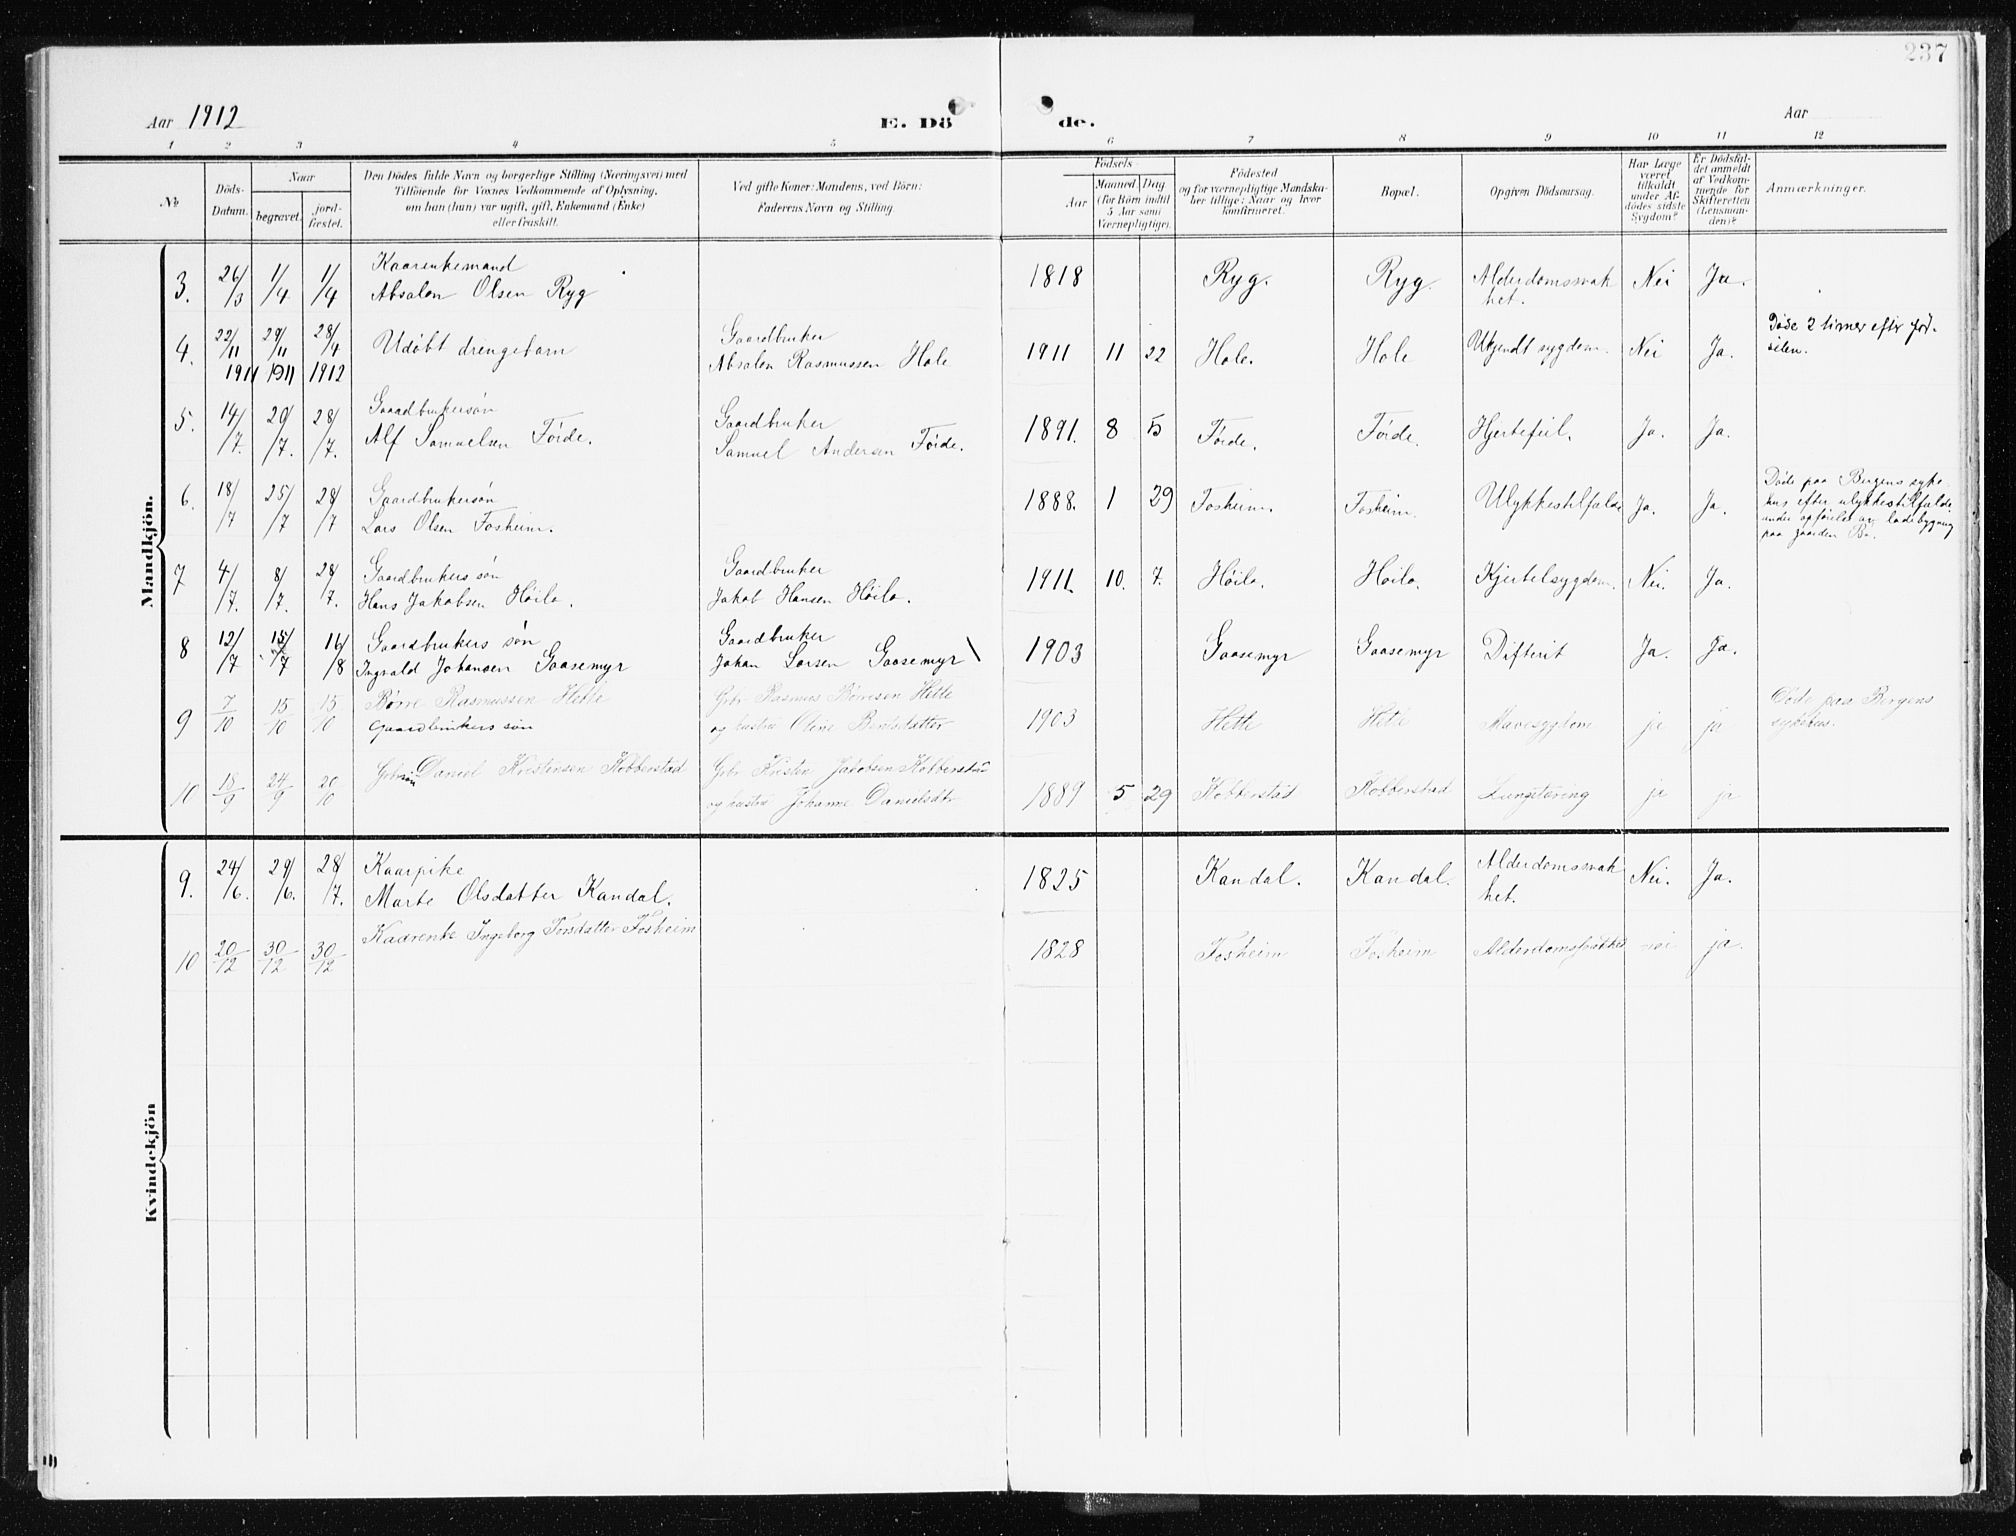 237
Aar 1912
E. Dö de.
Aar
1 2 3 4 5 6 7 8 9 10 11 12
№
Döds-Datum.
Naar
begravet.
jord-fæstet.
Den Dödes fulde Navn og borgerlige Stilling (Næringsvei) med
Tilföiende for Voxnes Vedkommende af Oplysning,
om han (hun) var ugift, gift, Enkemand (Enke)
eller fraskilt.
Ved gifte Koner: Mandens, ved Börn:
Faderens Navn og Stilling
Födsels-
Aar
Maaned Dag
(for Börn indtil
5 Aar samt
Værnepligtige).
Födested
og for værnepligtige Mandska-
ber tillige: Naar og hvor
konfirmeret.
Bopæl.
Opgiven Dödsaarsag.
Har Læge
været
tilkaldt
under Af-
dödes sidste
Sygdom?
Er Dödsfal-
det anmeldt
af Vedkom-
mende for
Skifteretten
(Lensman-
den)?
Anmærkninger.
Mandkjön.
3. 26/3 1/4 1/4 Kaarenkemand
Absalon Olsen Ryg 1818 Ryg. Ryg. Alderdomssvak
het. Nei Ja.
4. 22/11 1911 29/11 1911 28/4 1912 Udöbt drengebarn Gaardbruker
Absalon Rasmussen Hole 1911 11 22 Hole. Hole Ukjendt sygdom. Nei Ja. Döde 2 timer efter föd-
selen.
5. 14/7. 20/7. 28/7. Gaardbrukersøn
Alf Samuelsen Förde. Gaardbruker
Samuel Andersen Förde. 1891. 8 5 Förde. Förde. Hjertefeil. Ja. Ja.
6. 18/7 25/7 28/7 Gaardbrukersøn
Lars Olsen Fosheim. 1888. 1 29 Fosheim. Fosheim. Ulykkestilfælde Ja. Ja. Døde paa Bergens syke-
hus efter ulykkestilfælde
under opförelse av ladebygning
paa gaarden Bø.
7 4/7. 8/7. 28/7. Gaardbrukers søn
Hans Jakobsen Höilo. Gaardbruker
Jakob Hansen Höilo. 1911. 10. 7. Höilo. Höilo. Kjertelsygdom. Nei. Ja.
8 12/7 15/7 16/8 Gaardbrukers søn
Ingvald Johansen Gaasemyr Gaardbruker
Johan Larsen Gaasemyr 1903 Gaasemyr Gaasemyr Difterit Ja. Ja.
9 7/10 15/10 15/10 Børre Rasmussen Hette
Gaardbrukers søn Gbr Rasmus Børresen Hette
og hustru Oline Bentsdatter 1903 Hette Hette Mavesygdom ja ja Døde paa Bergens
sykehus.
10 18/9 24/9 20/10 Gbr søn Daniel Kristensen Kobberstad Gbr Kristen Jakobsen Kobberstad
og hustru Johanne Danielsdtr 1889 5 29 Kobberstad Kobberstad Lungetæring ja ja
Kvindekjön
9. 24/6. 29/6. 28/7. Kaarpike
Marte Olsdatter Kandal. 1825 Kandal. Kandal. Alderdomssvak
het. Nei. Ja.
10 20/12 30/12 30/12 Kaarenke Ingeborg Torsdatter Fosheim 1828 Fosheim Fosheim nei ja.